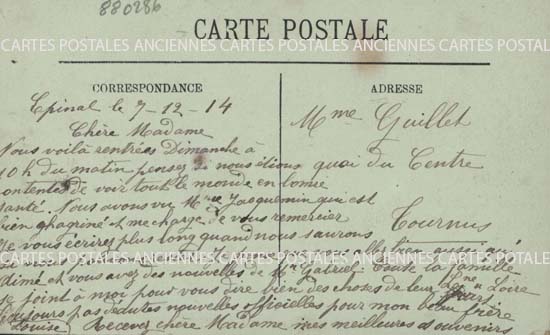 880286
CARTE POSTALE
CARTES POSTALES ANCIENNES CARTES POSTALES ANCIENNES CARTES POSTALES
CORRESPONDANCE
ADRESSE
Epinal le 7-12-14
Chère Madame
Nous voilà rentrées Dimanche à
10h du matin pensez si nous étions
contentes de voir tout le monde en bonne
santé. Nous avons vu Mme Jacquemin qui est
bien chagriné et me charge de vous remercier
Je vous écrirez plus long quand nous saurons
aussi
et vous avez des nouvelles de Mr Gabriel. Toute la famille
se joint à moi pour vous dire bien des choses de leur part
toujours pas de nouvelles officielles pour mon beau frère
Louise Recevez chère Madame mes meilleures souvenirs
Mme Guillet
quai du Centre
Tournus
Loire